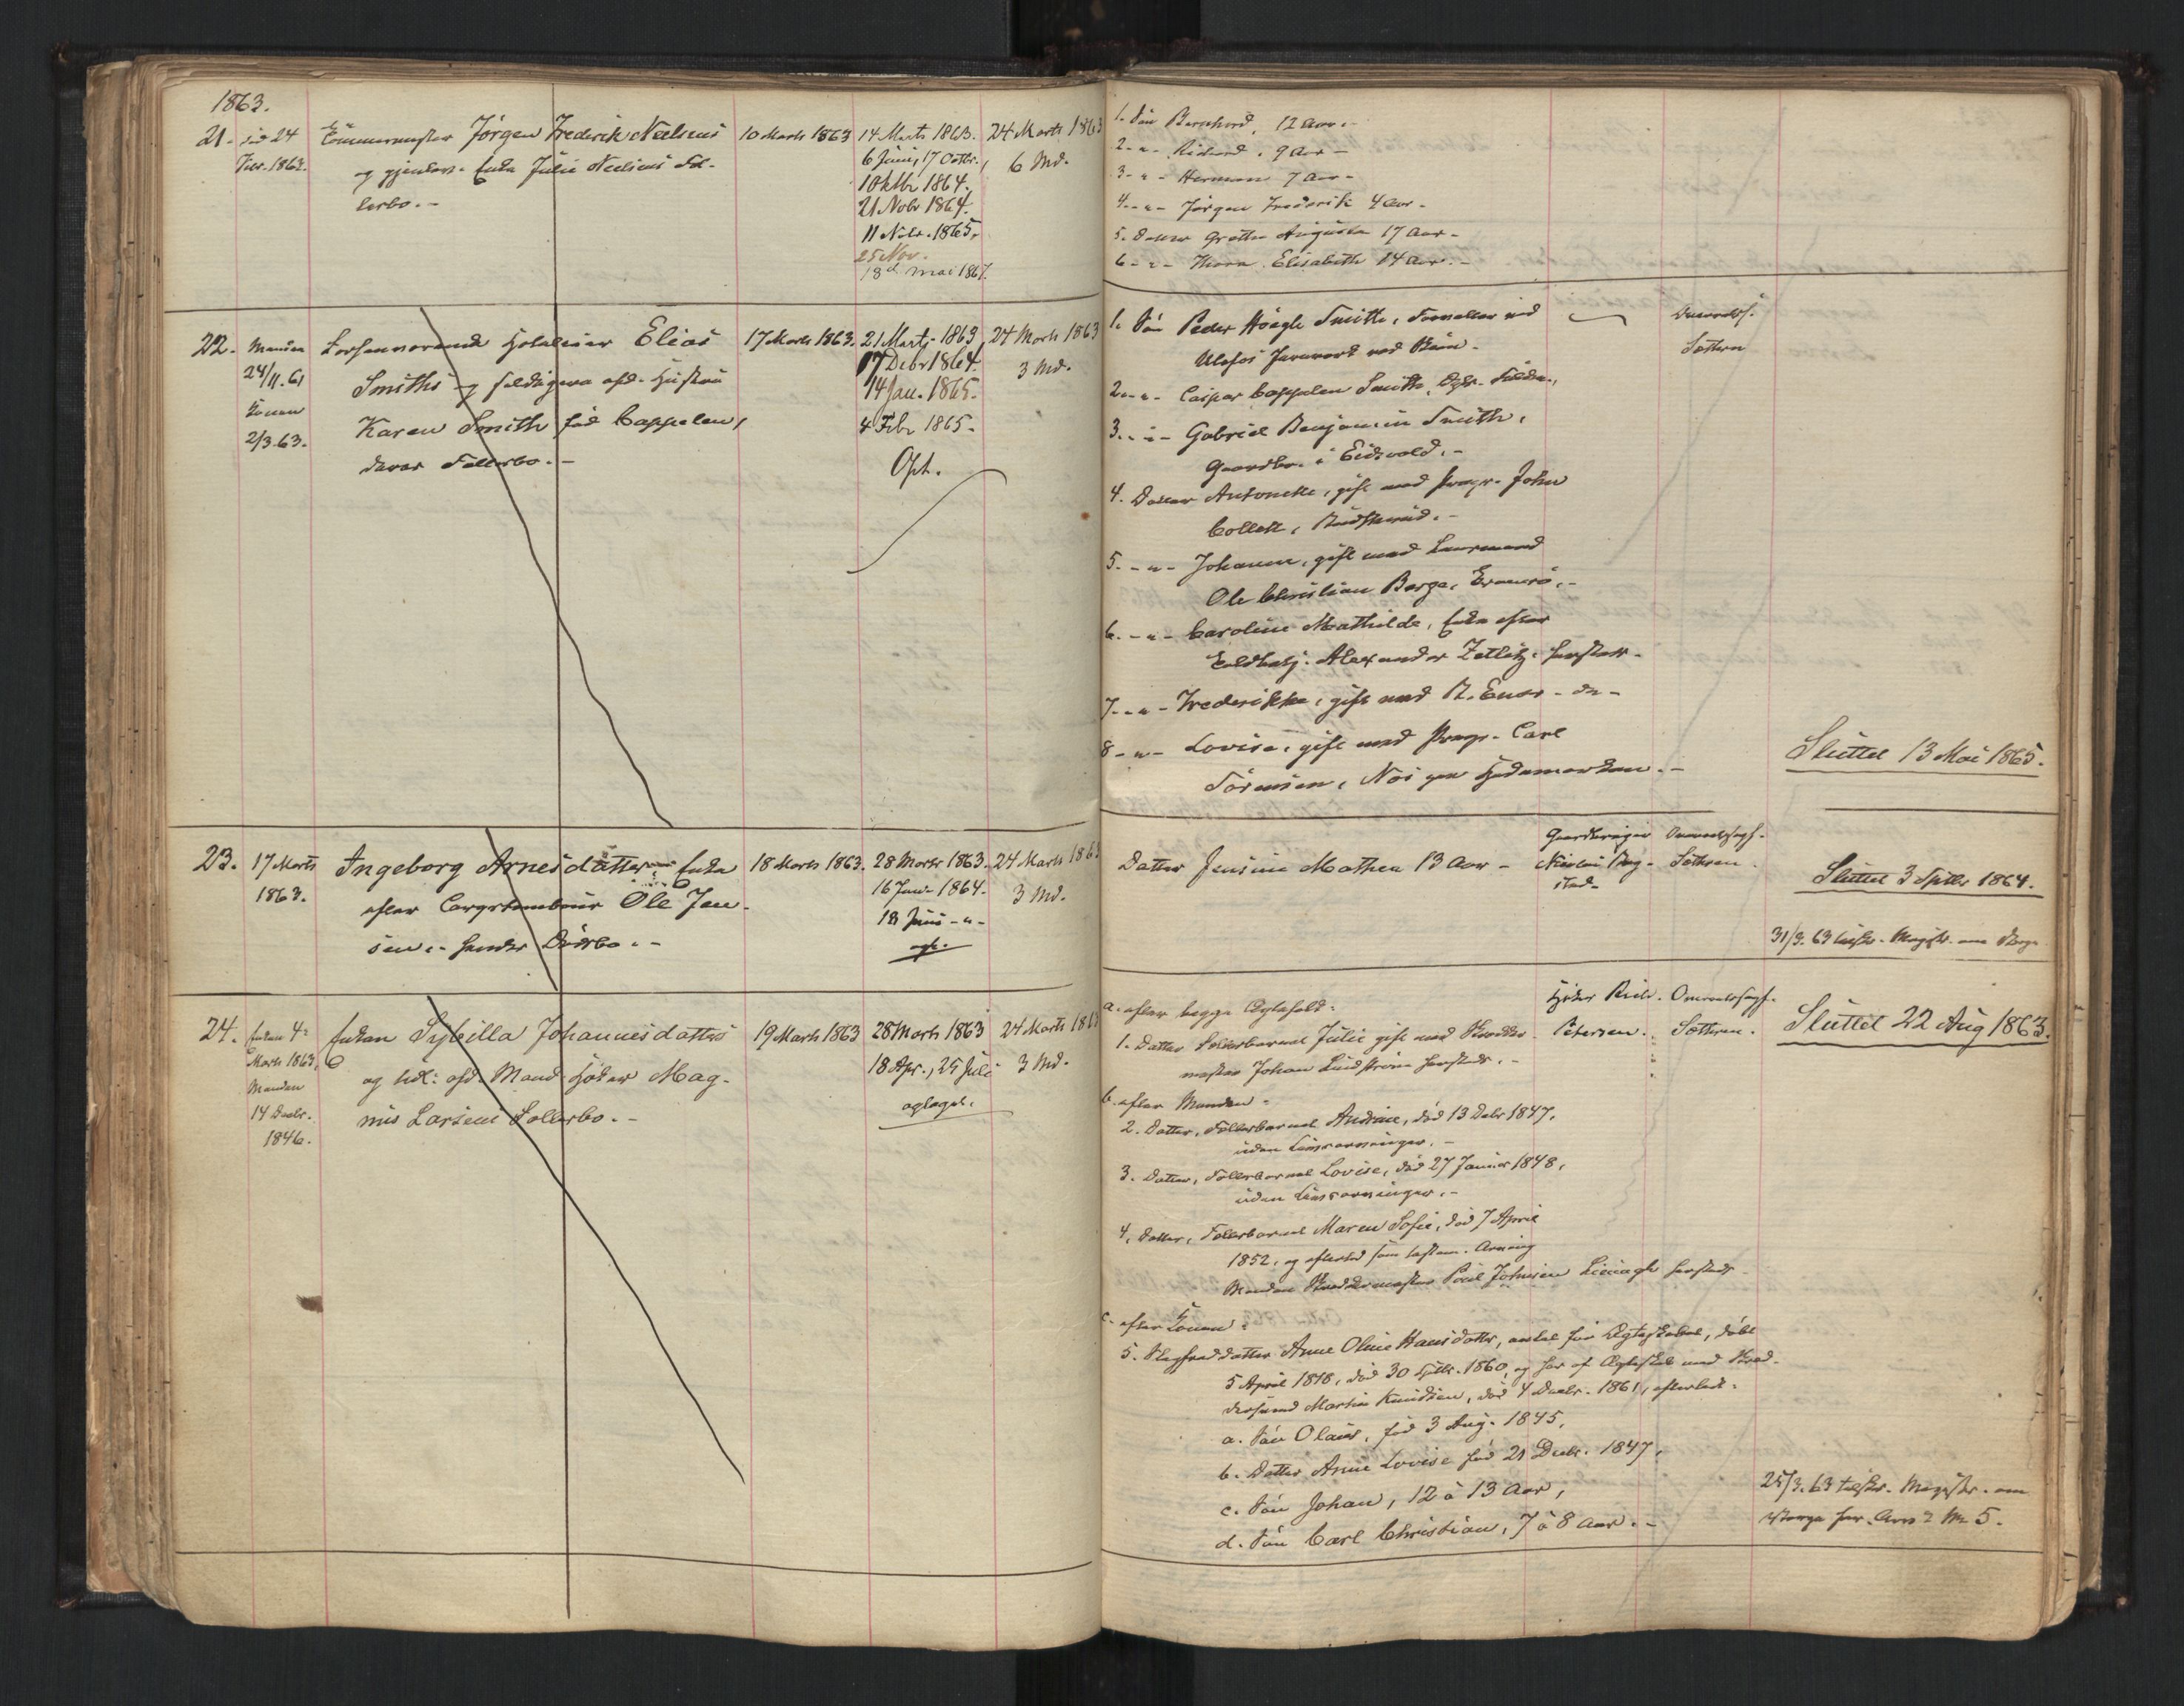 1863.
21. død 24 Tømmermester Jörgen Frederik Nielsens 10 Marts 1863 14 Marts 1863. 24 Marts 1863
Febr. 1863. og gjenlev. Enke Julie Nielsens Fæl- 6 Juni, 17 Octbr., 6 Md.
lesbo. - 10 Octbr 1864.
21 Nobr 1864.
11 Nobr. 1865.
25 Nov.
18de Mai 1867.
22. Manden forhenværende Elias 17 Marts 1863. 21 Marts 1863 24 Marts 1863
24/11.61 Smiths og afd. Hustru 17 Debr 1864. 3 Md.
Konen Karen Smith fød Cappelen, 14 Jan. 1865.
2/3 63. deres Fællesbo. - 4 Febr 1865.
Opt.
23. 17 Marts Ingeborg Arnesdatter, Enke 18 Marts 1863. 28 Marts 1863. 24 Marts 1863
1863. efter Ole Jen- 16 Jan. 1864. 3 Md.
sen, hendes Dödsbo. - 18 Juni - " -
opt.
24. Enken 4de Enken Sybilla Johannesdatters 19 Marts 1863 28 Marts 1863 24 Marts 1863
Marts 1863, og tidl. afd. Mand Höker Mag- 18 Apr., 25 Juli 3 Md.
Manden nus Larsens Fællesbo. - optaget.
14 Decbr.
1846.
1. Søn Bernhard, 12 Aar. -
2. - " - Richard, 9 Aar -
3. - " - Herman 7 Aar -
4. - " - Jörgen Frederik 4 Aar -
5. Datter Grethe Augusta 17 Aar -
6. - " - Thora Elisabeth 14 Aar. -
1. Søn Peder Höegh Smith, Forvalter ved Overretss.
Ulefos Jernværk ved Skien. Sæthren
2. - " - Caspar Cappelen Smith,
3. - " - Gabriel Benjamin Smith,
Gaardbr. i Eidsvold. -
4. Datter Antonette, gift med Propr. John
Collett, Buskerud. -
5. - " - Johanne, gift med Lensmand
Ole Christian Borge, -
6. - " - Caroline Mathilde, Enke efter
Alexander Zetlitz. hersteds. -
7. - " - Frederikke, gift med - do -
8 - " - Lovise, gift med Propr. Carl
Sörensen, Næs paa Hedemarken. - Sluttet 13 Mai 1865.
Datter Jensine Mathea 13 Aar - Gaardbruger Nicolai Overretssagf. Sæthren. Sluttet 3 Septbr 1864.
31/3. 63 tilskr. Magistr. om Værge
a. efter begge Ægtefolk: Höker Overretssagf. Sluttet 22 Aug 1863.
1. Datter Fællesbarnet Julie gift med Skrædder- Petersen. Sæthren.
mester Johan Lindström hersteds. -
b. efter Manden -
2. Datter, Fællesbarnet Andrine, död 13 Debr 1847,
uden Livsarvinger. -
3. Datter, Fællesbarnet Lovise, död 27 Januar 1848,
uden Livsarvinger. -
4. Datter, Fællesbarnet Maren Sofie, död 7 April
1852, og efterlod som testam. Arving
Manden Skræddermester Poul Johnsen hersteds -
c. efter Konen:
5. Slegfreddatter Anne Oline Hansdatter, avlet før Ægteskabet, döbt
5 April 1818, död 30 Septbr. 1860, og har af Ægteskab med Skræd-
dersvend Martin Knudsen, död 4 Decbr. 1861, efterladt:
a. Søn Olaus, född 3 Aug. 1845.
b. Datter Anne Lovise född 21 Decbr. 1847.
c. Søn Johan, 12 à 13 Aar,
d. Søn Carl Christian, 7 à 8 Aar. -
25/3. 63 tilskr. Magistr. om
Værge for No 5.